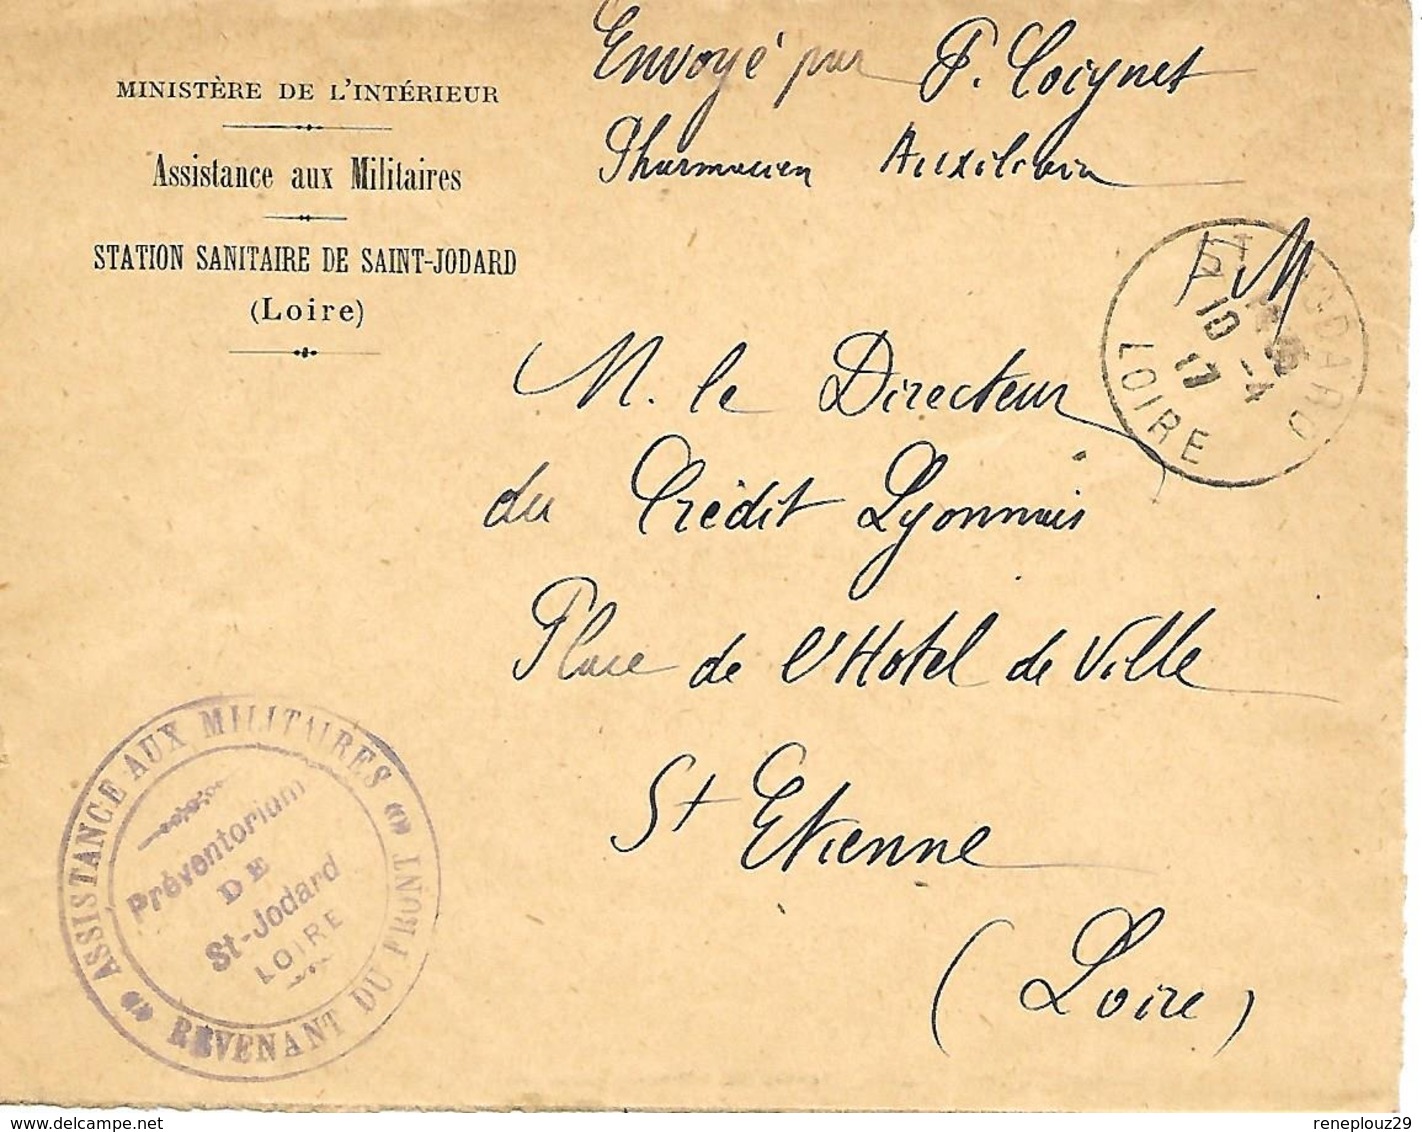 MINISTÈRE DE L'INTÉRIEUR
Assistance aux Militaires
STATION SANITAIRE DE SAINT-JODARD
(Loire)
Envoyé par F. Coignet
Pharmacien Auxiliaire
FM
ST JODARD
10 -4
17
LOIRE
M. le Directeur
du Crédit Lyonnais
Place de l'Hotel de Ville
St Etienne
(Loire)
ASSISTANCE AUX MILITAIRES
REVENANT DU FRONT
Préventorium
DE
St-Jodard
LOIRE
www.delcampe.net
reneplouz29